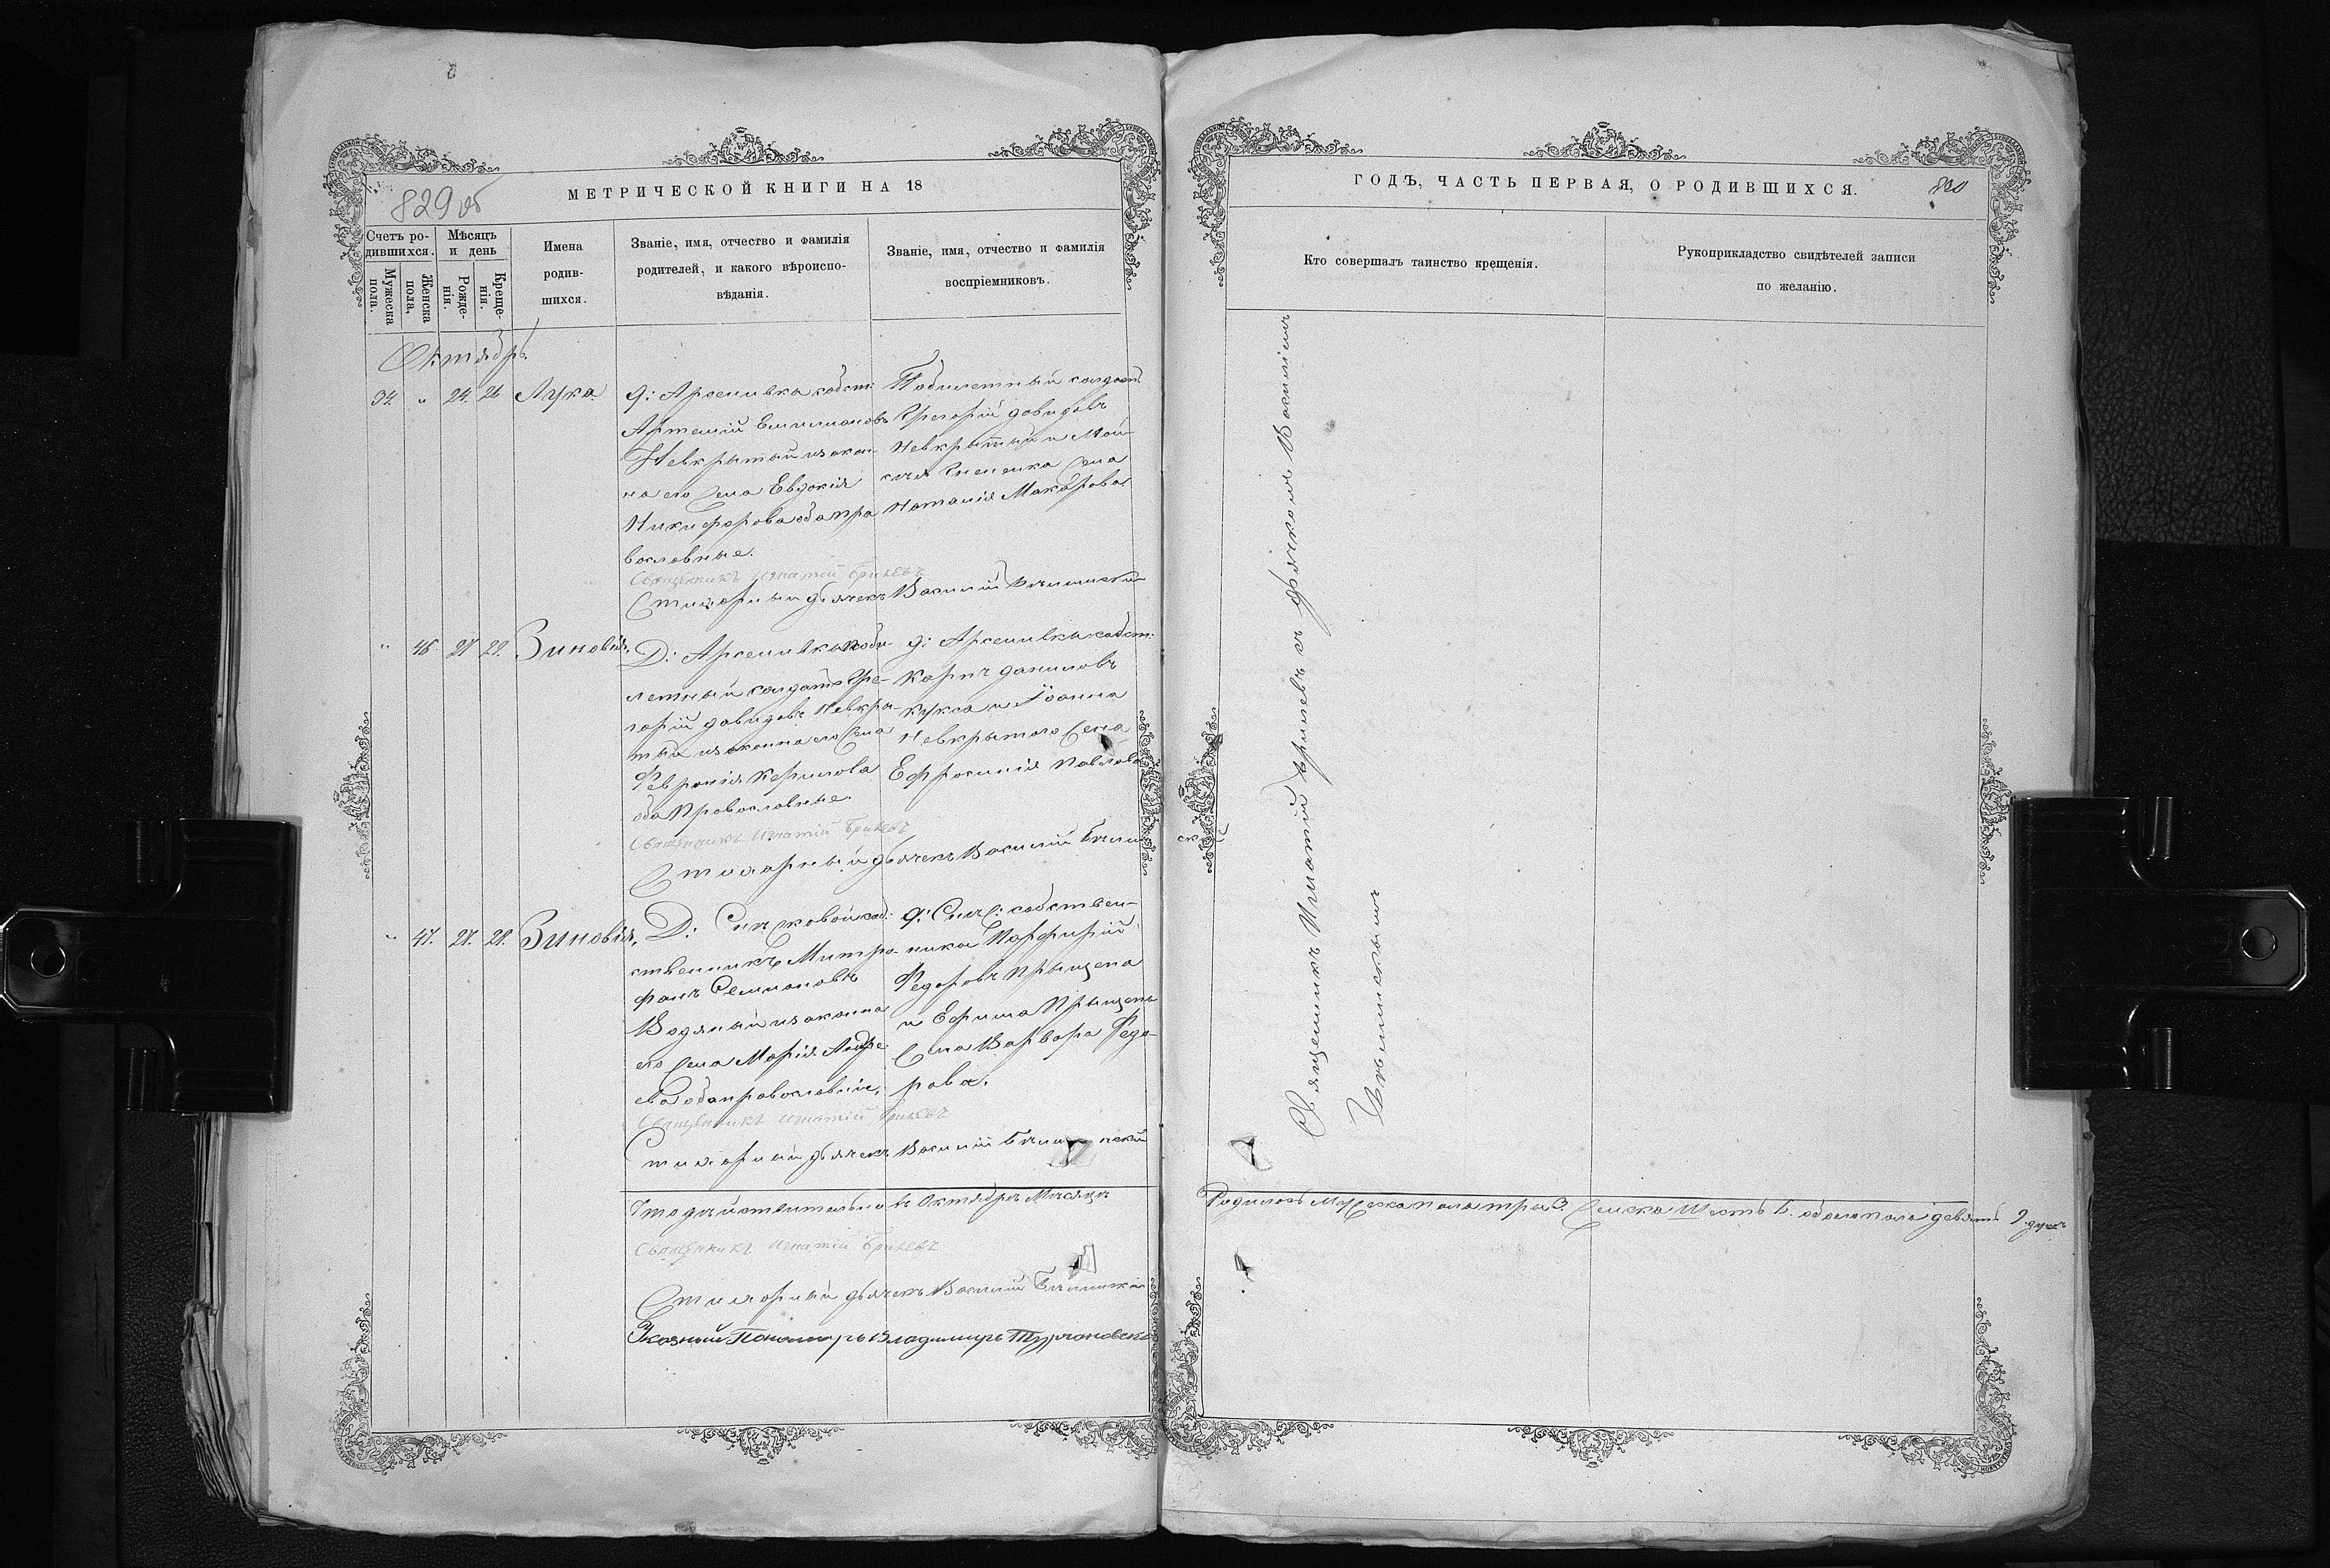 829 об
МЕТРИЧЕСКОЙ КНИГИ НА 18
Счетъ ро-
дившихся.
Мужеска
пола.
Женска
пола,
Мѣсяцъ
и день
Рожде-
нія.
Креще-
нія.
Имена
родив-
шихся.
Званіе, имя, отчество и фамилія
родителей, и какого вѣроиспо-
вѣданія.
Званіе, имя, отчество и фамилія
воспріемниковъ.
Октябрь
34. " 24. 26 Лука.
д: Арсенивка собст:
Артемій
Невкрытый и закон-
на его жена Евдокія
Никифорова оба пра
вославные.
Священникъ Игнатій
Стихарный дьячекъ Василій
Побилетный солдатъ
Григорій Давидовъ
Невкрытый и
жена
Наталія Макарова
" 46 27 28. Зиновія,
Д: Арсенивки поби
летный солдатъ Гри-
горій Давидовъ Невкры-
тый и законна его жена
Февронія Кирилова
оба православные.
Священникъ Игнатій
Стихарный дьячекъ Василій
д: Арсенивки собст:
Даниловъ
Кукса и Іоанна
Невкрытого жена
Ефросинія Павлова
" 47. 27. 28. Зиновія,
Д: соб:
ственникъ Митро-
фанъ Семионовъ
Водяный и законна
его жена Марія Андре-
ева оба православніе,
Священникъ Игнатій
Стихарный дьячекъ Василій
собствен-
ника Порфирій
Федоровъ Прыщепа
и Ефима Прыщепы
жена Варвара Федо-
рова.
Что дѣйствительно въ Октябрѣ Мѣсяцѣ
Священникъ Игнатій
Стихарный дьячекъ Василій
Указный Пономарь Владимиръ
830
ГОДЪ, ЧАСТЬ ПЕРВАЯ, О РОДИВШИХСЯ.
Кто совершалъ таинство крещенія.
Рукоприкладство свидѣтелей записи
по желанію.
Священникъ Игнатій съ дьячкомъ Василіемъ
Родилось Мужеска пола три 3. Женска шесть 6. обоего пола девять 9. душъ